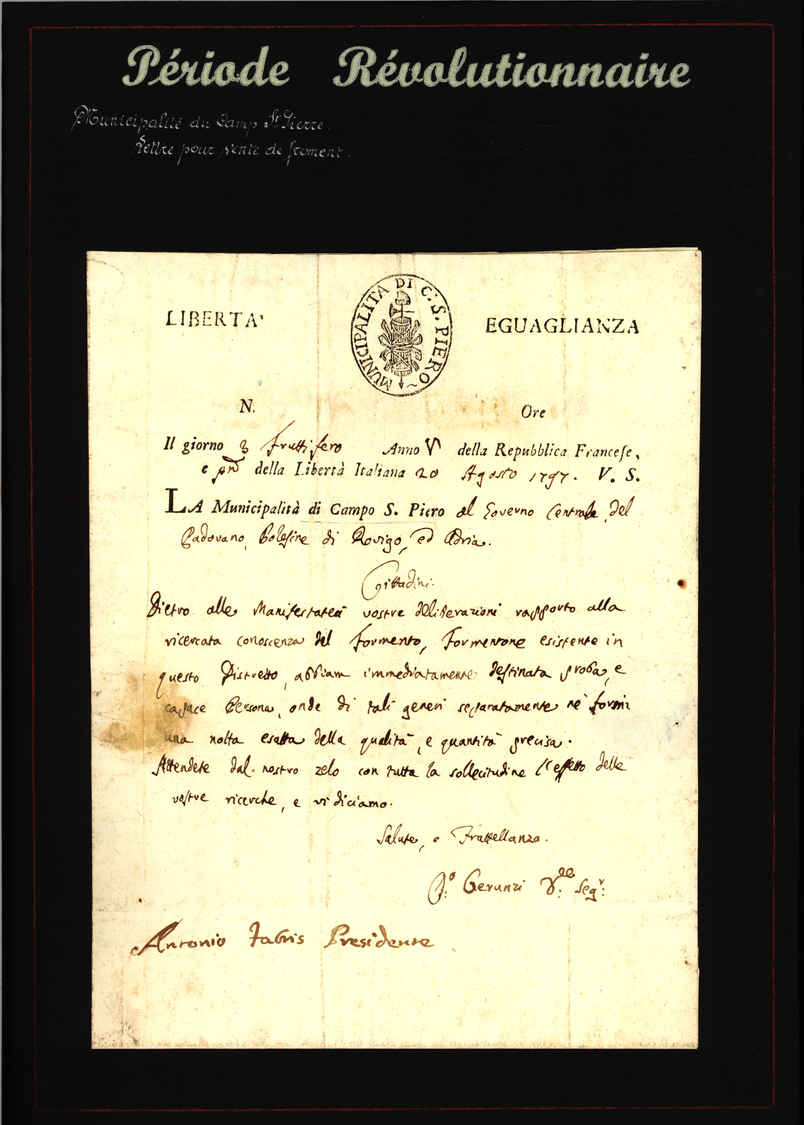 Période Révolutionnaire
Municipalité du Camp St Pierre.
Lettre pour vente de froment.
MUNICIPALITA DI C. S. PIERO
LIBERTA' EGUAGLIANZA
N. Ore
Il giorno 3 Fruttifero Anno V della Repubblica Francese,
e pmo della Libertà Italiana 20 Agosto 1797. V. S.
LA Municipalità di Campo S. Piero al Governo Centrale del
Padovano, Polesine di Rovigo, ed Adria.
Cittadini.
Dietro alle Manifestateci vostre deliberazioni rapporto alla
ricercata conoscenza del formento, formentone esistente in
questo Distretto, abbiam immediatamente destinata proba, e
capace Persona, onde di tali generi separatamente ne formi
una notta esatta della qualità, e quantità precisa.
Attendete dal nostro zelo con tutta la sollecitudine l'effetto delle
vostre ricerche, e vi diciamo.
Salute, e Fratellanza.
Gerunzi Segr.
Antonio Fabris Presidente